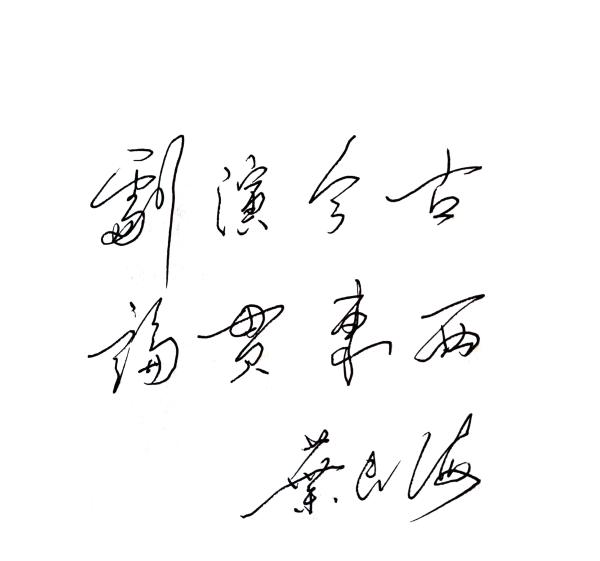 劇演今古
論貫東西
葉長海